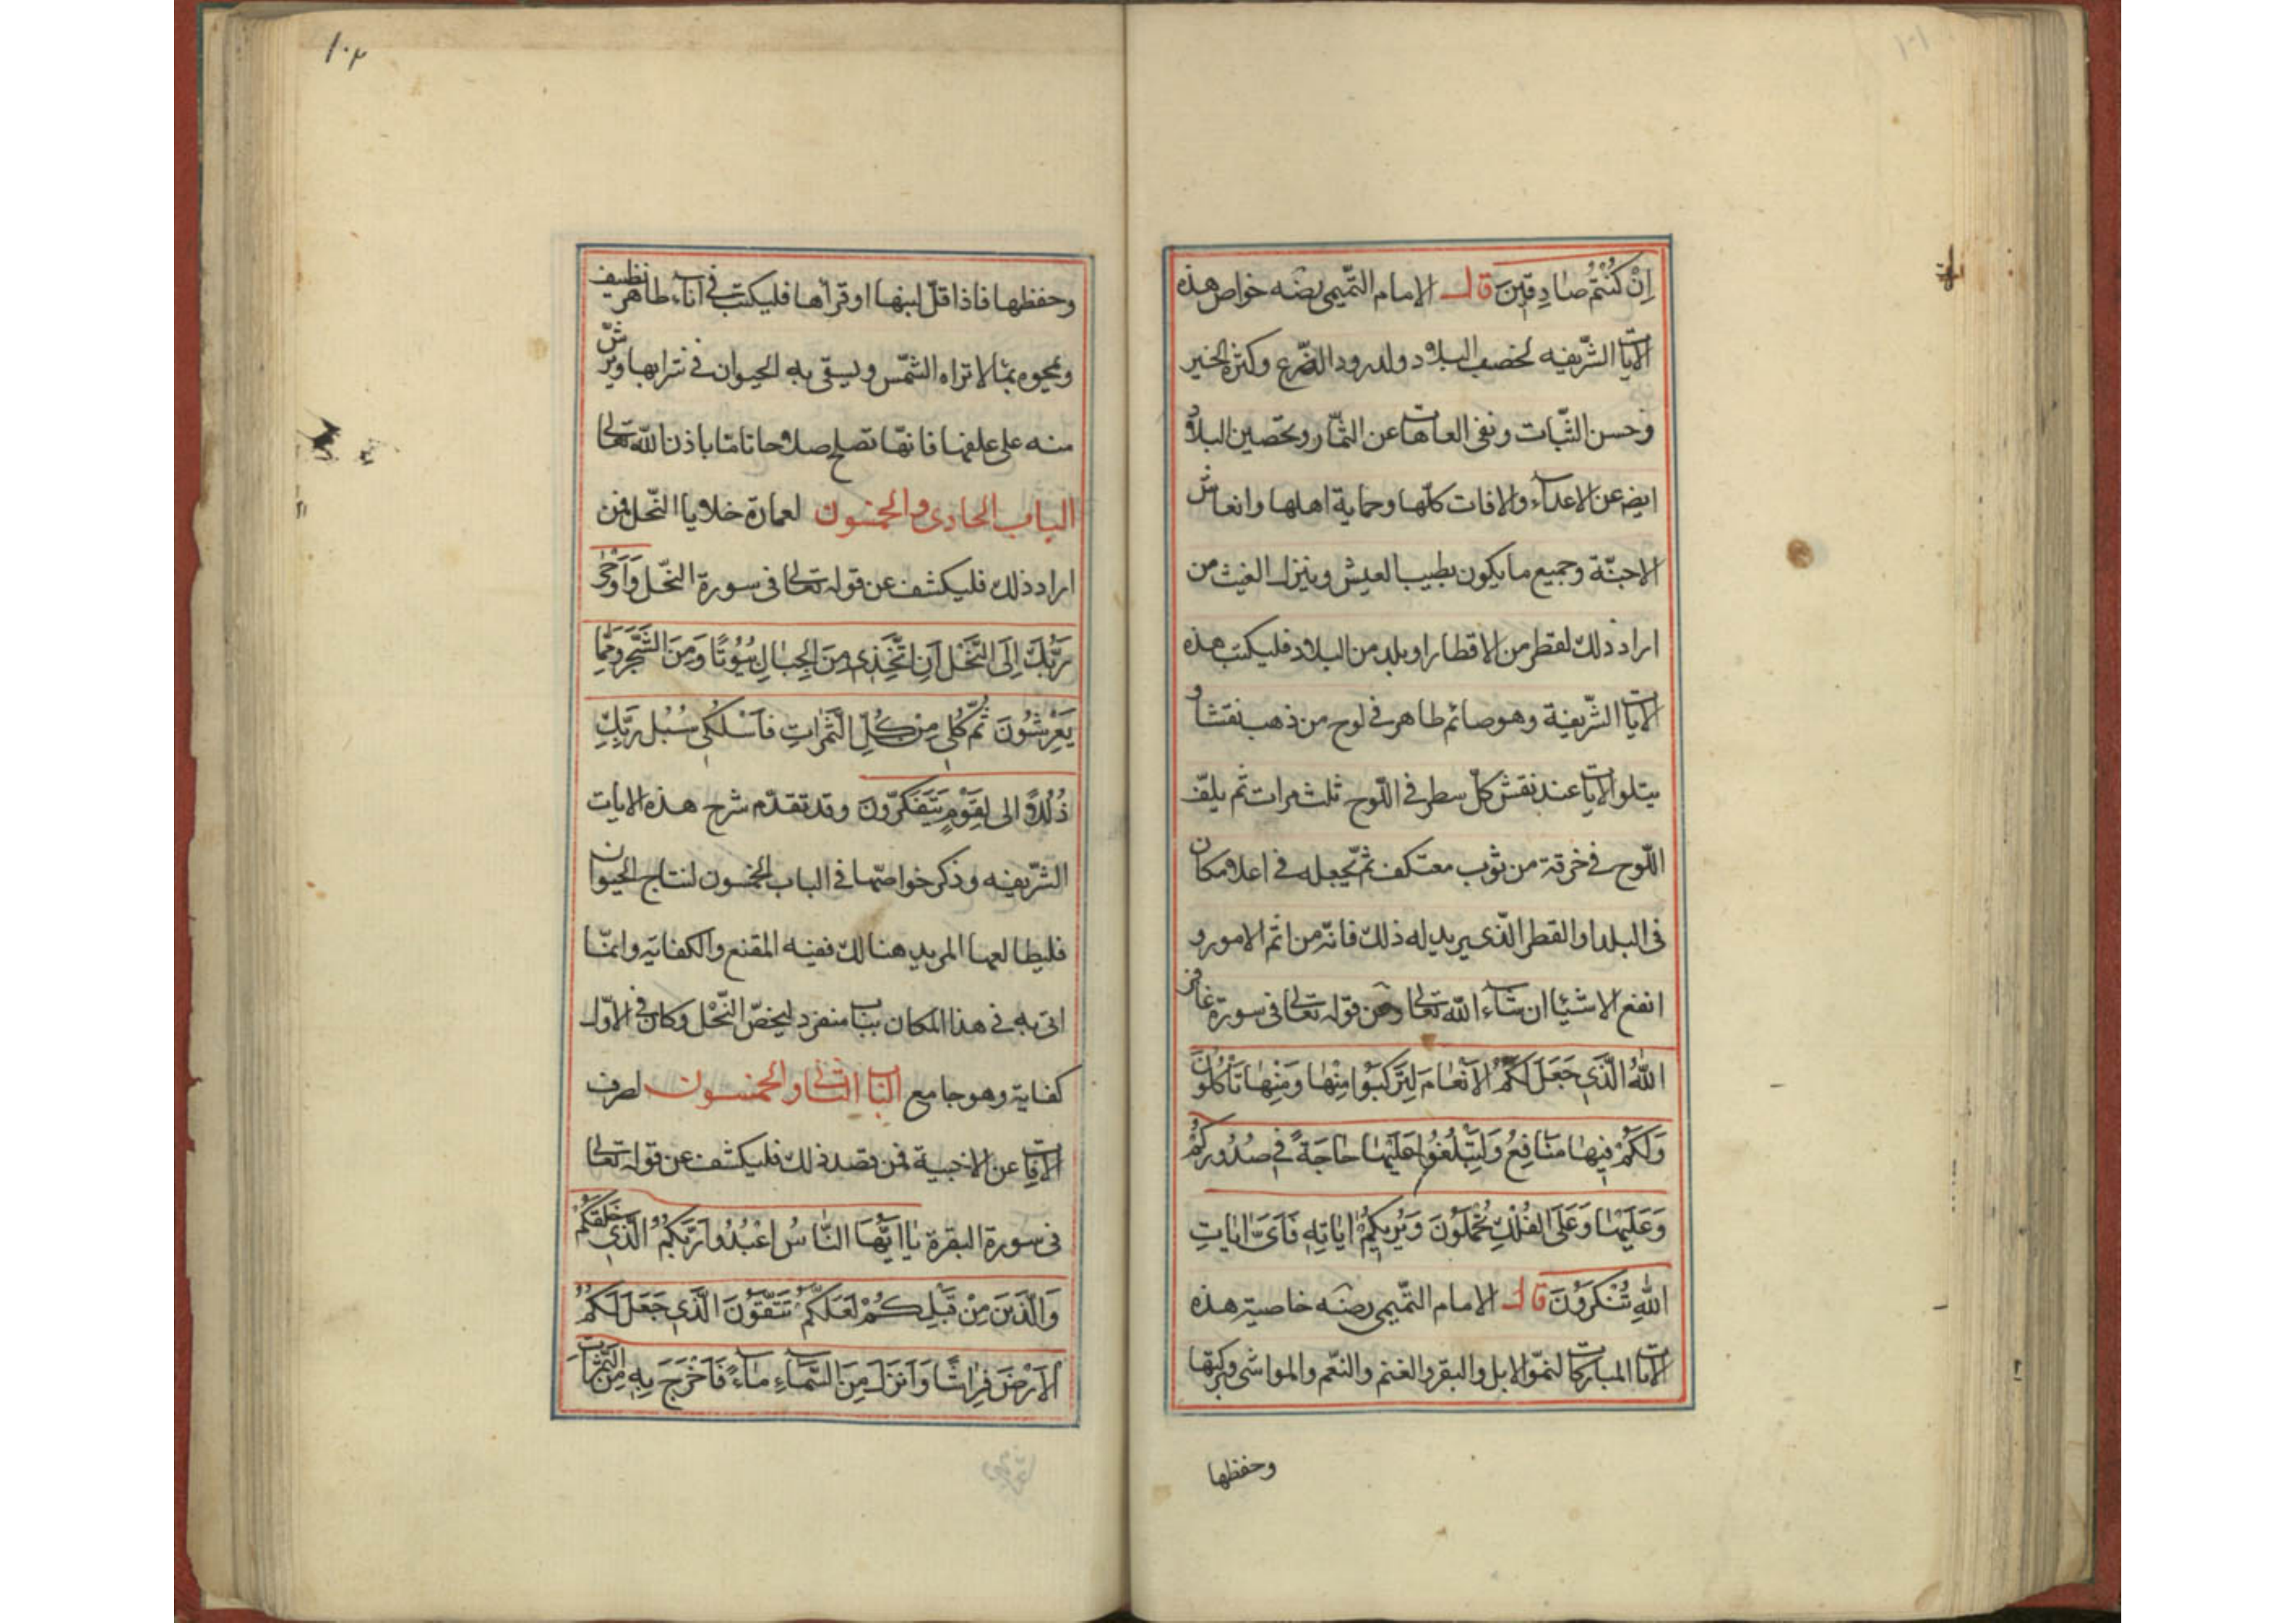 ١٠١
اِنْ كُنْتُمْ صَادِقِينَ قال الامام التّميمى رضه خواص هذه
الايات الشّريفه لخصب البلاد ولدرود الضّرع وكثرة الخير
وحسن النّبات ونفى العاهات عن الثمار وتحصين البلاد
ايضه عن الاعداء والافات كلّها وحماية اهلها وانعاش
الاجنّة وجميع ما يكون بطيب العيش وينزل الغيث من
اراد ذلك لقطر من الاقطار او بلد من البلاد فليكتب هذه
الايات الشّريفة وهو صائم طاهر فى لوح من ذهب نقشا و
يتلو الايات عند نقش كلّ سطر فى اللّوح ثلث مرات ثم يلفّ
اللّوح فى خرقة من ثوب معتكف ثم يجعله فى اعلا مكان
فى البلد او القطر الّذى يريد له ذلك فانّه من اتم الامور و
انفع الاشيئا ان شاء الله تعالى وعن قوله تعالى فى سورة غافر
اَللّٰهُ الَّذِي جَعَلَ لَكُمُ الْاَنْعَامَ لِتَرْكَبُوا مِنْهَا وَمِنْهَا تَأْكُلُونَ
وَلَكُمْ فِيهَا مَنَافِعُ وَلِتَبْلُغُوا عَلَيْهَا حَاجَةً فِي صُدُورِكُمْ
وَعَلَيْهَا وَعَلَى الْفُلْكِ تُحْمَلُونَ وَيُرِيكُمْ اٰيَاتِهِ فَاَىَّ اٰيَاتِ
اللّٰهِ تُنْكِرُونَ قال الامام التّميمى رضه خاصية هذه
الايات المباركات لنموّ الابل والبقر والغنم والنعم والمواشى وبركتها
وحفظها
١٠٢
وحفظها فاذا قلّ لبنها او قرأها فليكتب فى اناء طاهر نظيف
ويمحوه بمئا لا تراه الشّمس ويسقى به الحيوان فى شرابها ويرشّ
منه على علفها فانّها تصلح صلاحا تامّا باذن الله تعالى
الباب الحادى والخمسون لعمارة خلايا النّحل فمن
اراد ذلك فليكشف عن قوله تعالى فى سورة النّحل وَاَوْحٰى
رَبُّكَ اِلَى النَّحْلِ اَنِ اتَّخِذِي مِنَ الْجِبَالِ بُيُوتًا وَمِنَ الشَّجَرِ وَمِمَّا
يَعْرِشُونَ ثُمَّ كُلِي مِنْ كُلِّ الثَّمَرَاتِ فَاسْلُكِي سُبُلَ رَبِّكِ
ذُلُلًا الى لِقَوْمٍ يَتَفَكَّرُونَ وقد تقدّم شرح هذه الايات
الشّريفه وذكر خواصّها فى الباب الخمسون لنتاج الحيوان
فليطالعها المريد هنالك ففيه المقنع والكفايه وانمّا
اتى به فى هذا المكان بباب منفرد ليخصّ النّحل وكان فى الاوّل
كفاية وهو جامع الباب الثانى والخمسون لصرف
الافات عن الاخبية فمن قصد ذلك فليكشف عن قوله تعالى
فى سورة البقرة يَا اَيُّهَا النَّاسُ اعْبُدُوا رَبَّكُمُ الَّذِي خَلَقَكُمْ
وَالَّذِينَ مِنْ قَبْلِكُمْ لَعَلَّكُمْ تَتَّقُونَ الَّذِي جَعَلَ لَكُمُ
الْاَرْضَ فِرَاشًا وَاَنْزَلَ مِنَ السَّمَاءِ مَاءً فَاَخْرَجَ بِهِ مِنَ الثَّمَرَاتِ